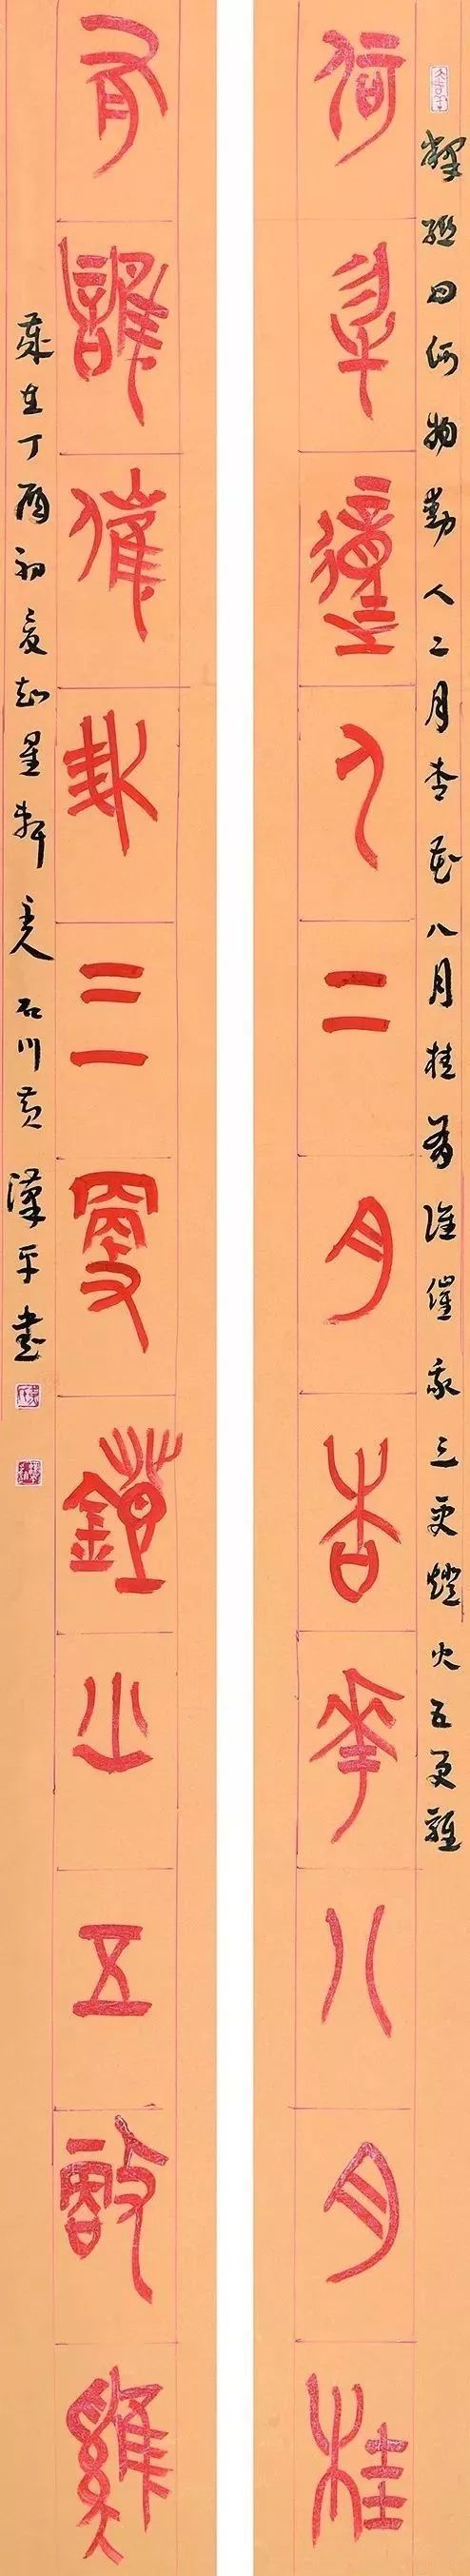 釋聯曰何物動人二月杏花八月桂有誰催我三更燈火五更雞
何物動人二月杏花八月桂
有誰催我三更燈火五更雞
歲在丁酉初夏星軒主人石川黃漢平書